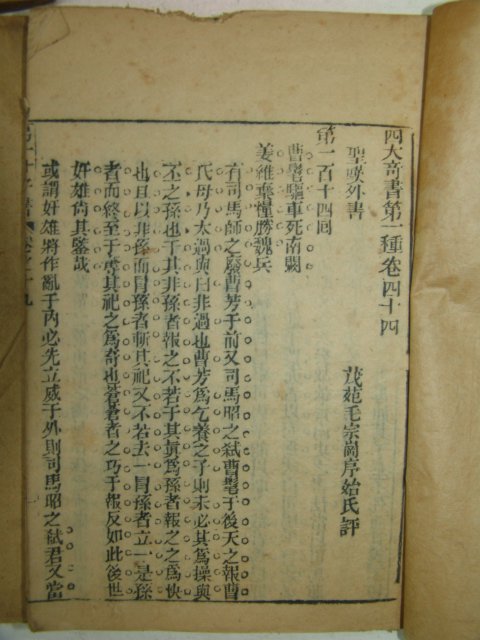 四大奇書第一種卷四十四
聖歎外書
茂苑毛宗崗序始氏評
第一百十四回
曹髦驅車死南闕
姜維棄糧勝魏兵
有司馬師之廢曹芳于前又司馬昭之弒曹髦于後天之報曹
氏毋乃太過與曰非過也曹芳爲乞養之子則未必其爲操與
丕之孫也于其非孫者報之不若于其眞爲孫者報之之爲快
也且以非孫而冒孫者斬其祀又不若去一冒孫者立一是孫
者而終至于虛其祀之爲奇也蒼蒼者之巧于報反如此後世
奸雄尙其鑒哉
或謂奸雄將作亂于內必先立威于外則司馬昭之弒君又當